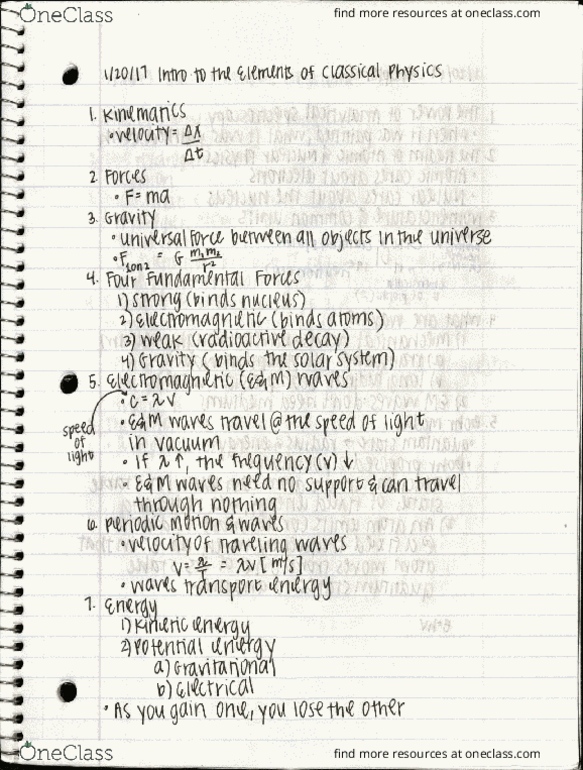 OneClass
find more resources at oneclass.com
1/20/17 Intro to the Elements of Classical Physics
1. Kinematics
• velocity = Δx/Δt
2. Forces
• F = ma
3. Gravity
• universal force between all objects in the universe
• F1on2 = G m1m2/r²
4. Four Fundamental Forces
1) strong (binds nucleus)
2) Electromagnetic (binds atoms)
3) weak (radioactive decay)
4) Gravity (binds the solar system)
5. Electromagnetic (E&M) waves
• c = λν
speed of light
• E&M waves travel @ the speed of light
in vacuum
• If λ↑, the frequency (ν) ↓
• E&M waves need no support & can travel
through nothing
6. Periodic motion & waves
• velocity of traveling waves
v = λ/T = λν [m/s]
• waves transport energy
7. Energy
1) Kinetic energy
2) Potential energy
a) Gravitational
b) Electrical
• As you gain one, you lose the other
OneClass
find more resources at oneclass.com